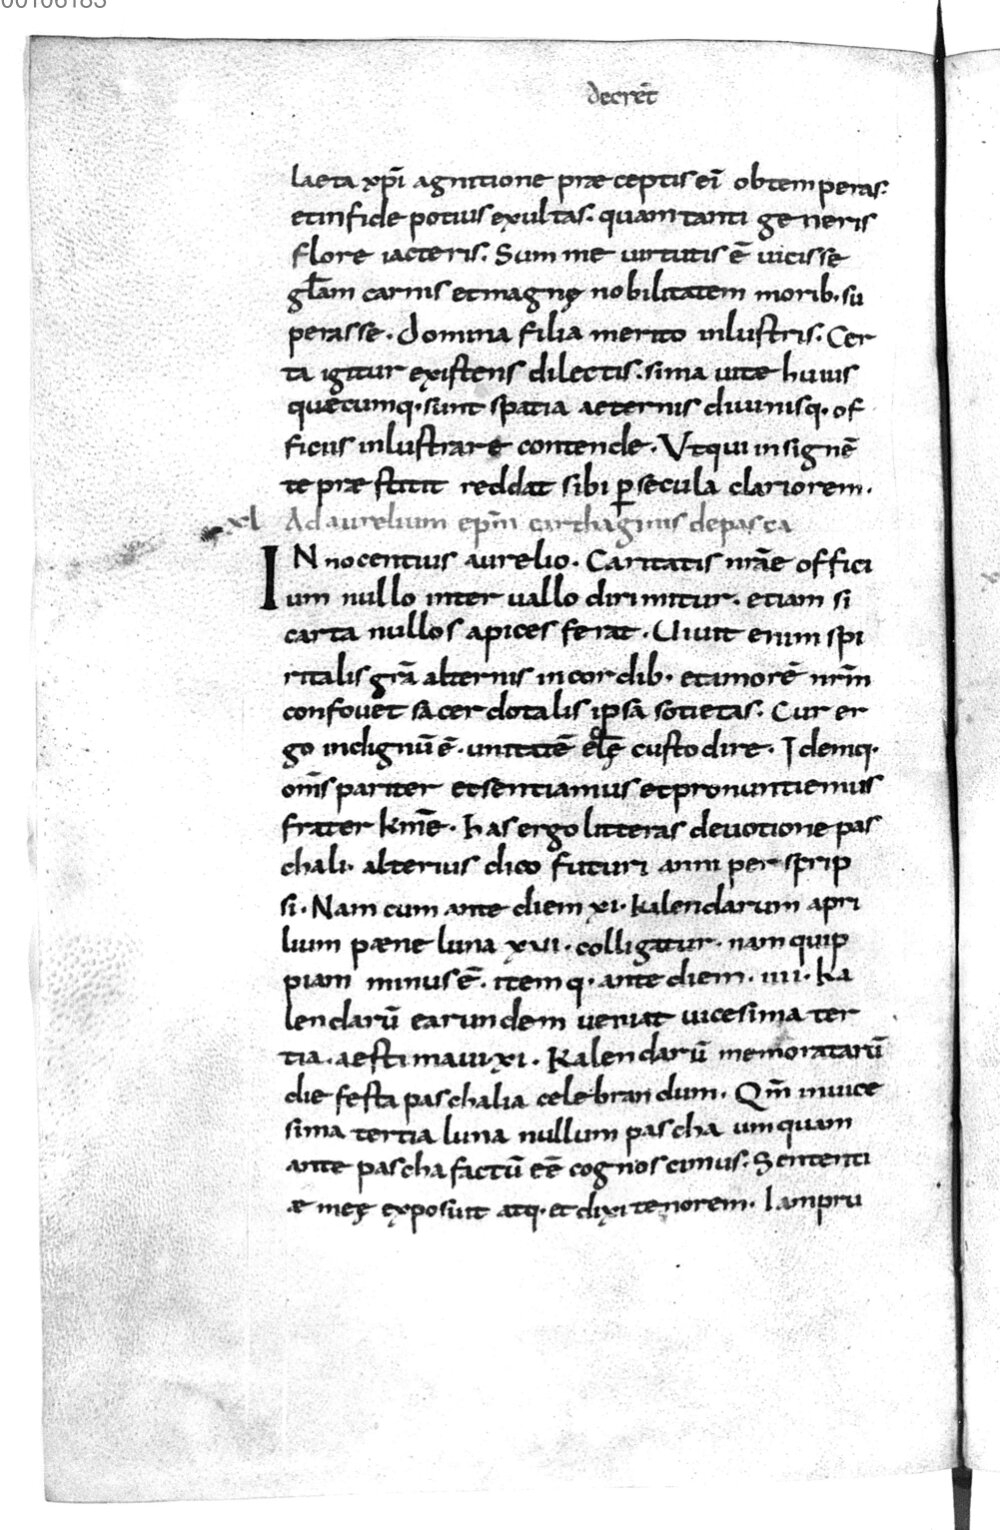 00106183
decret̄
laeta xp̄i agnitione præceptis ei obtemperas.
et in fide potius exultas. quam tanti generis
flore iacteris. Summe uirtutis ē uicisse
gl̄am carnis et magnę nobilitatem morib. su
perasse. domina filia merito inlustris. Cer
ta igitur existens dilectissima uitae huius
quecumq. sunt spatia aeternis diuinisq. of
ficiis inlustrare contende. Ut qui insignē
te præstitit reddat sibi ꝑ secula clariorem.
xl Ad aurelium ep̄m carthaginis de pasca
IN nocentius aurelio. Caritatis nr̄ae offici
um nullo interuallo dirimitur. etiam si
carta nullos apices ferat. Uiuit enim spi
ritalis gr̄a alternis in cordib. et amorē nr̄m
confouet sacerdotalis ipsa societas. Cur er
go indignū ē. unitatē custodire. Idemq.
om̄s pariter et sentiamus et pronuntiemus
frater km̄e. has ergo litteras deuotione pas
chali. alterius dico futuri anni perscrip
si. Nam cum ante diem xi. kalendarum apri
lium pæne luna xvi. colligatur. nam quip
piam minus ē. itemq. ante diem. iiii. ka
lendarū earundem ueniat uicesima ter
tia. aestimaui xi. kalendarū memoratarū
die festa paschalia celebrandum. Qm̄ in uice
sima tertia luna nullum pascha umquam
ante pascha factū eē cognoscimus. Sententi
æ meę exposui atq. et dixi tenorem. Iam pru